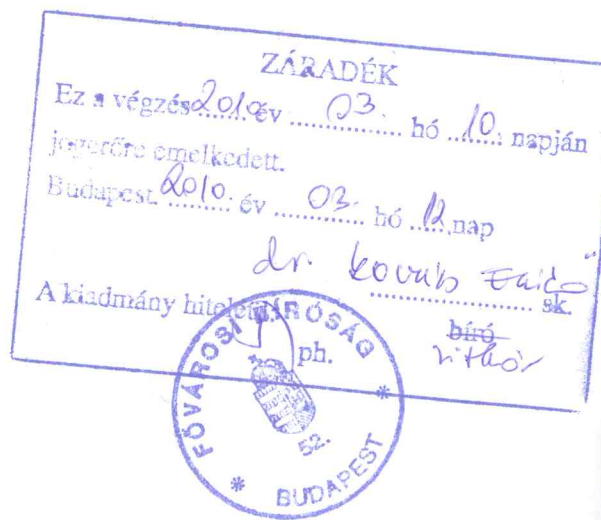 ZÁRADÉK
Ez a végzés 2010. év 03. hó 10. napján
jogerőre emelkedett.
Budapest. 2010. év 03. hó 12 nap
dr. Kovács
sk.
A kiadmány hiteléül:
bíró
ph.
FŐVÁROSI BÍRÓSÁG
52.
* BUDAPEST *